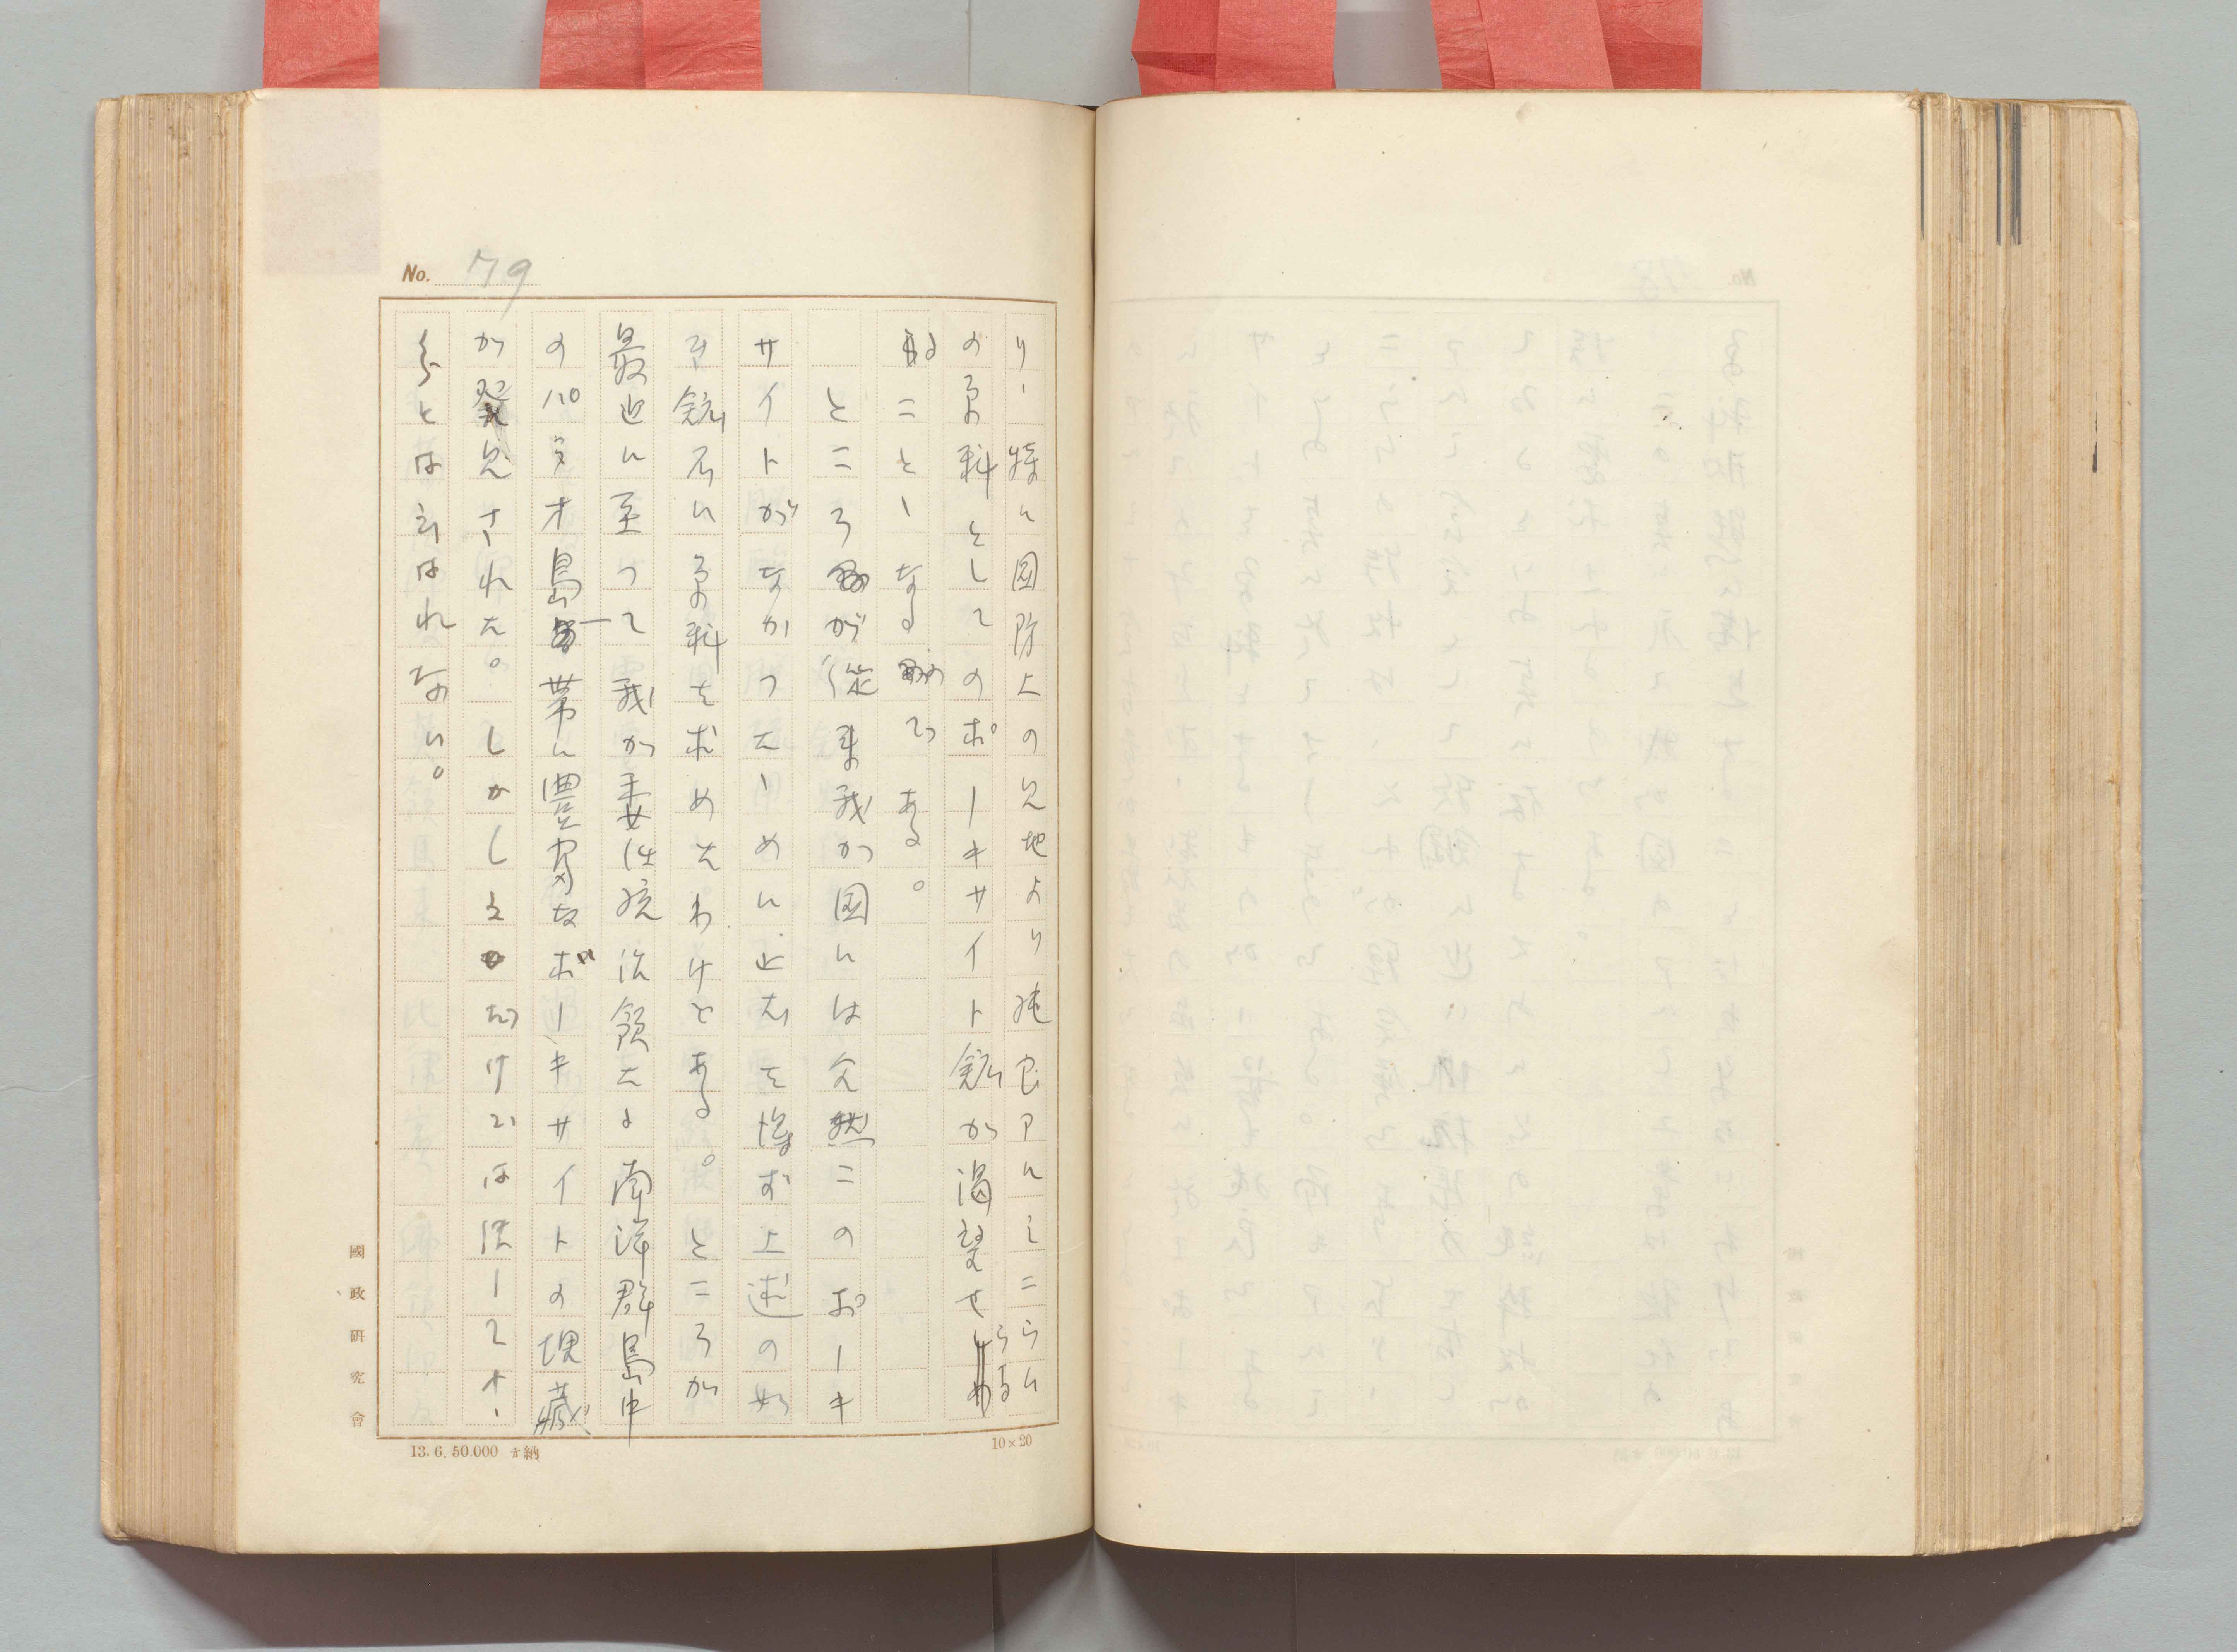 No. 79
り、特に國防上の見地より純良アルミニウム
の原料としてのボーキサイト鑛が渴望せらる
ることゝなるのである。
ところが從來我が國には全然このボーキ
サイトがなかつた、ために止むを得ず上述の如
き鑛石に原料を求めたわけである。ところが
最近に至つて我が委任統治領たる南洋群島中
のパラオ島一帶に豐富なボーキサイトの埋藏
が發見された。しかしそれだけでは決して十、
分とは言はれない。
國政研究會
13.6.50.000 納
10×20